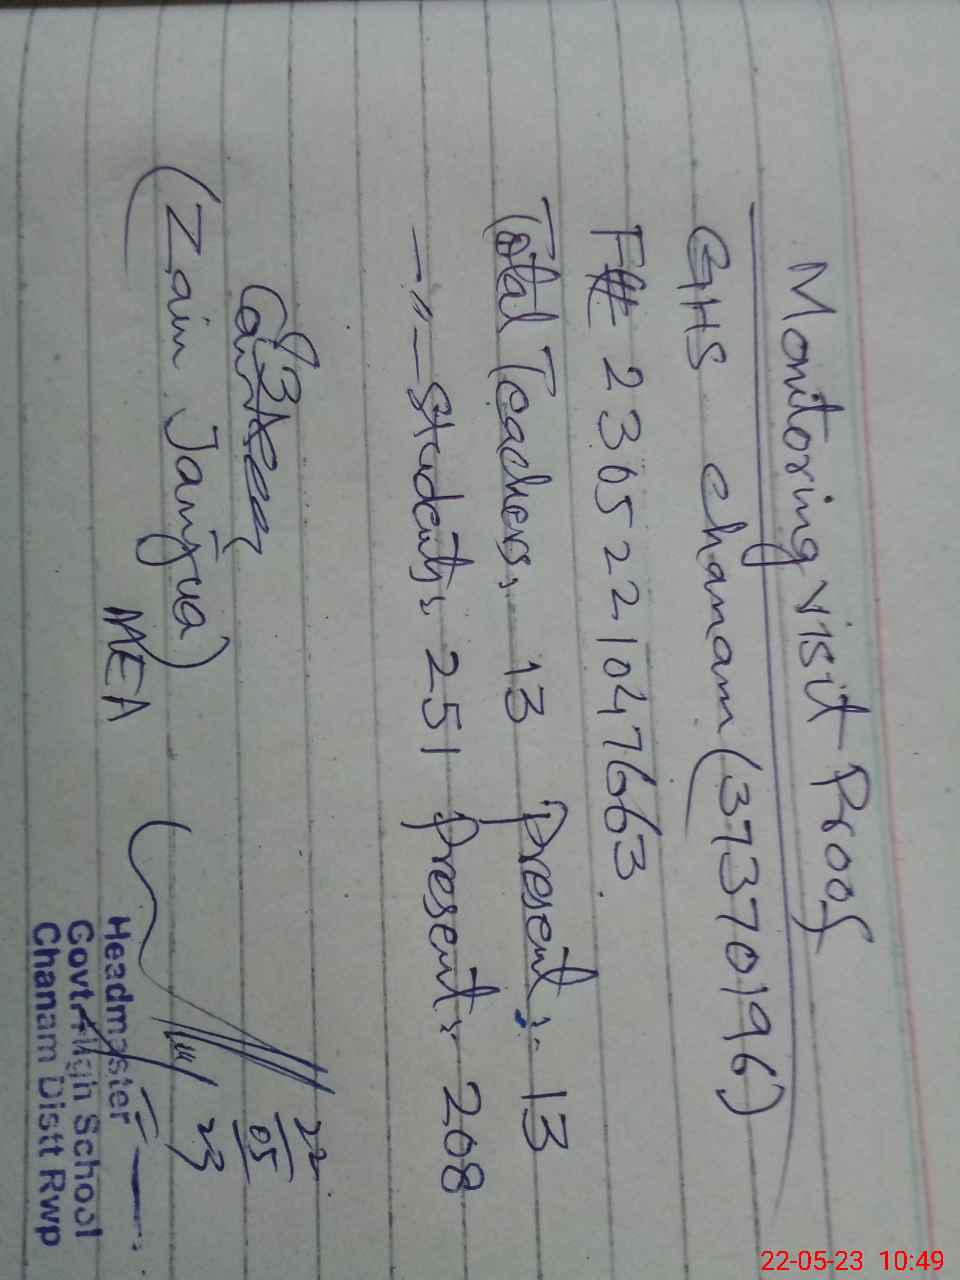 Monitoring visit Proof
GHS chanam (37370196)
F# 2305221047663.
Total Teachers: 13 Present:- 13
—"— Students: 251 Present:- 208
(Zain Janjua)
MEA
22
05
23
Headmaster
Govt. High School
Chanam Distt Rwp
22-05-23 10:49